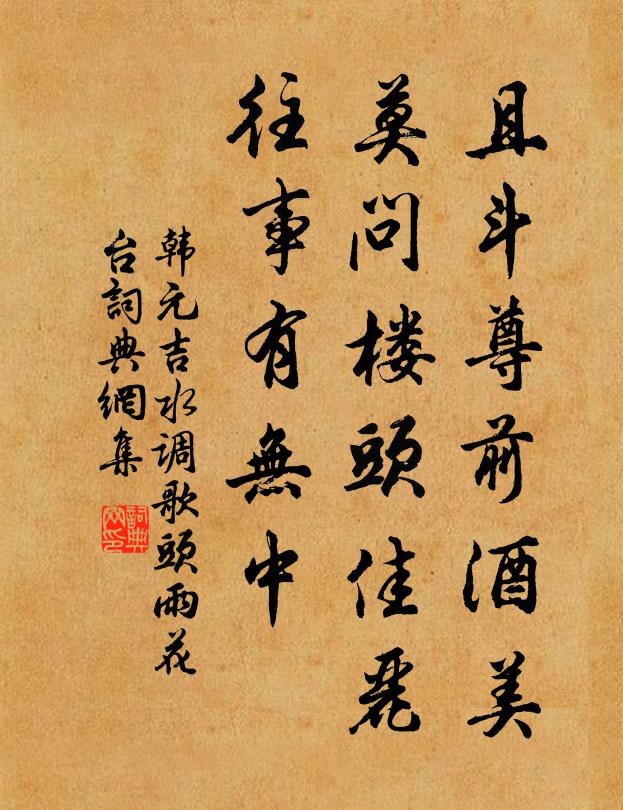 且斗尊前酒美
莫问楼頭佳麗
往事有無中
韩元吉水调歌頭雨花
台詞典網集
詞典
网印